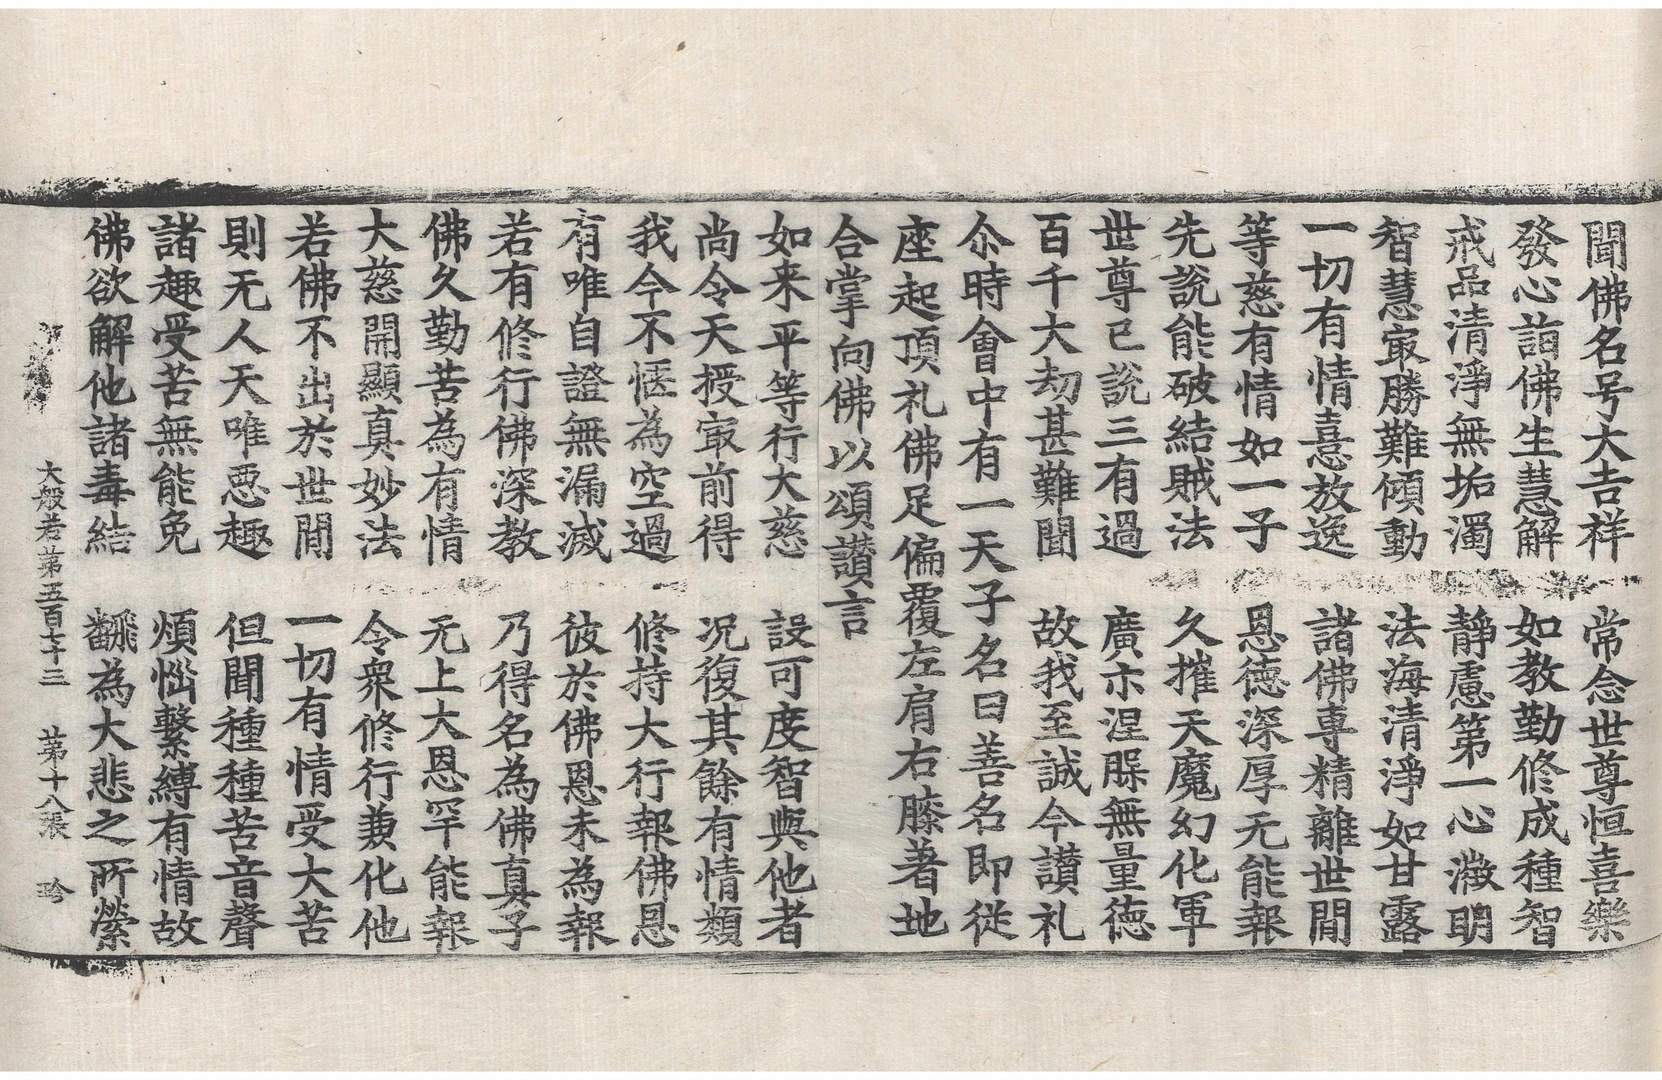 聞佛名号大吉祥　常念世尊恒喜樂
發心詣佛生慧解　如教勤修成種智
戒品清淨無垢濁　靜慮第一心澂明
智慧㝡勝難傾動　法海清淨如甘露
一切有情憙放逸　諸佛專精離世間
等慈有情如一子　恩德深厚无能報
先說能破結賊法　久摧天魔幻化軍
世尊已說三有過　廣示涅槃無量德
百千大劫甚難聞　故我至誠今讃礼
尒時會中有一天子名曰善名即從
座起頂礼佛足偏覆左肩右膝著地
合掌向佛以頌讃言
如来平等行大慈　設可度智與他者
尚令天授㝡前得　况復其餘有情類
我今不惬為空過　修持大行報佛恩
有唯自證無漏滅　彼於佛恩未為報
若有修行佛深教　乃得名為佛真子
佛久勤苦為有情　无上大恩罕能報
大慈開顯真妙法　令衆修行兼化他
若佛不出於世間　一切有情受大苦
則无人天唯惡趣　但聞種種苦音聲
諸趣受苦無能免　煩惱繫縛有情故
佛欲解他諸毒結　飜為大悲之所縈
大般若第五百七十三　第十八張　珎